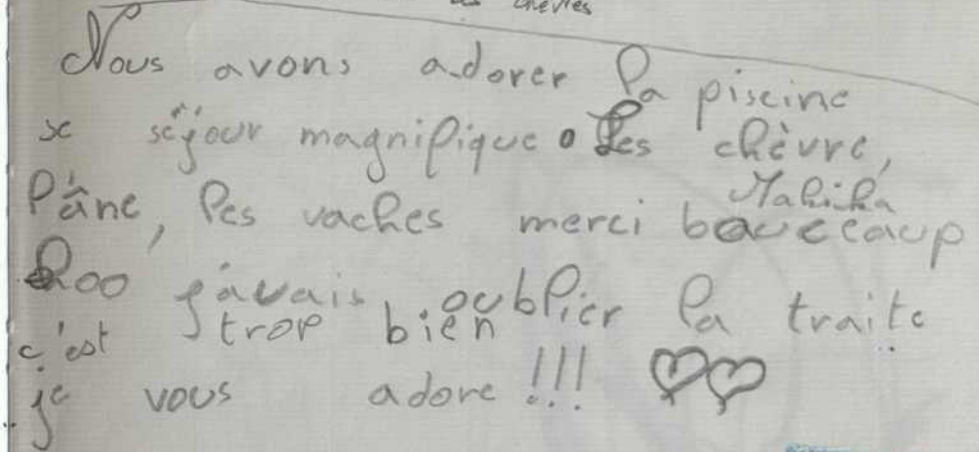 chèvres
Nous avons adorer la piscine
se séjour magnifique. Les chèvre,
l'âne, les vaches merci bouccaup
Hoo j'avais oublier la traite
c'est trop bien
je vous adore !!!